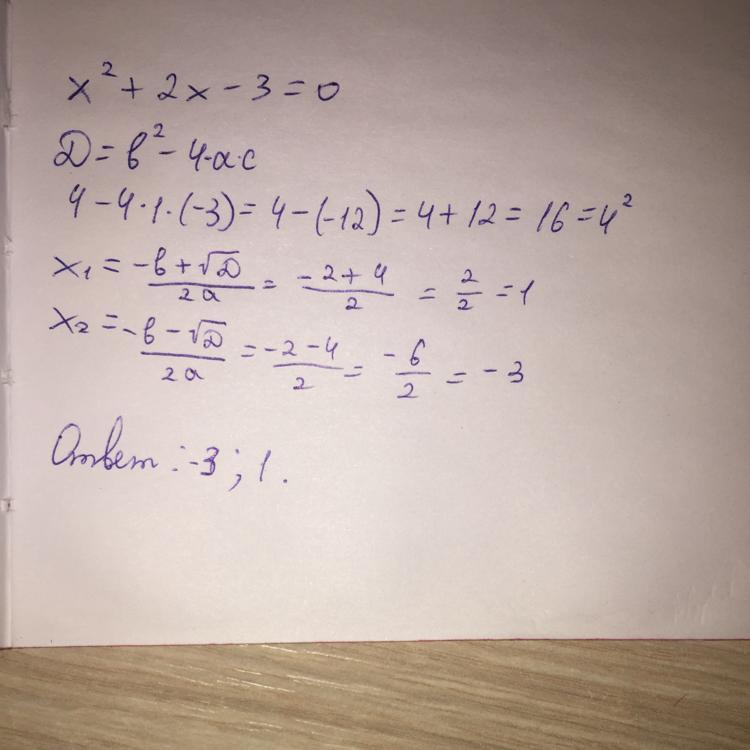 x² + 2x - 3 = 0
D = b² - 4·a·c
4 - 4·1·(-3) = 4 - (-12) = 4 + 12 = 16 = 4²
x₁ = (-b + √D)/(2a) = (-2 + 4)/2 = 2/2 = 1
x₂ = (-b - √D)/(2a) = (-2 - 4)/2 = (-6)/2 = -3
Ответ: -3; 1.